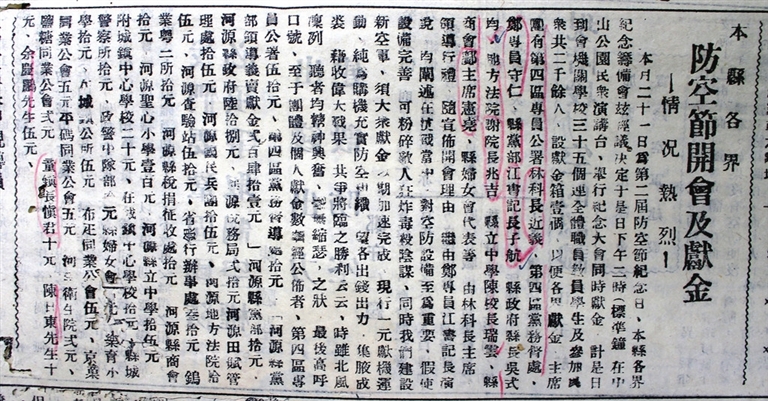 本縣各界
防空節開會及獻金
—情況熱烈—
本月二十一日爲第二屆防空節紀念日、本縣各界
紀念籌備會玆經議决定于是日下午二時（標準鐘）在中
山公園民衆演講台、舉行紀念大會同時獻金 計是日
到會機關學校三十五個連全體職員教員學生及參加民
衆共二千餘人 設獻金箱壹個 以便各界獻金 主席
團有第四區專員公署林科長近義、第四區黨務督處、
鄭專員守仁、縣黨部江書記長子航 縣政府縣長吳式
均、地方法院謝院長兆吉 縣立中學陳校長瑞雲 縣
商會鄺主席憲堯、縣婦女會代表等 由林科長主席
領導行禮 隨宣佈開會理由 繼由鄭專員江書記長演
説 均闡述在抗戰當中 對空防設備至爲重要、假使
設備完善 即可粉碎敵人狂炸毒殺陰謀、同時我們建設
新空軍、須大衆獻金 以期加速完成、現行一元獻機運
動、純爲購機充實防空 織 望各出錢出力 集腋成
裘 藉收偉大戰果 共爭將臨之勝利云云、時雖北風
凜列 聽者均精神興奮、 無縮瑟、之狀 最後高呼
口號、至于團體及個人獻金數 經公佈者、第四區專
員公署伍元、第四區黨務督導處拾元、 河源縣黨
部領導義賣獻金弍百肆拾壹元、 河源縣黨部拾元、
河源縣政府陸拾捌元、 河源稅務局弍拾元河源田賦管
理處拾伍元、河源國民兵團拾伍元、河源地方法院拾
伍元、河源查驗站伍拾元、省銀行辦事處叁拾元、鎢
業 二拾元、河源縣稅捐征收處拾元、 河源縣商會
拾元、河源聖心小學壹百元、河源縣立中學拾伍元、
附城鎮中心學校二十元、在城鎮中心學校拾元、縣城
警察所拾元、政警中隊部 元縣婦女會 元、樂育小
學拾元、 城 公所伍元、布疋同業公會伍元、京菓
同業公會五元平碼同業公會五元、河 衛生院弍元、
糖同業公會弍元、 童鎮長慎君十元、陳日東先生十
元、余慶鵬先生伍元、